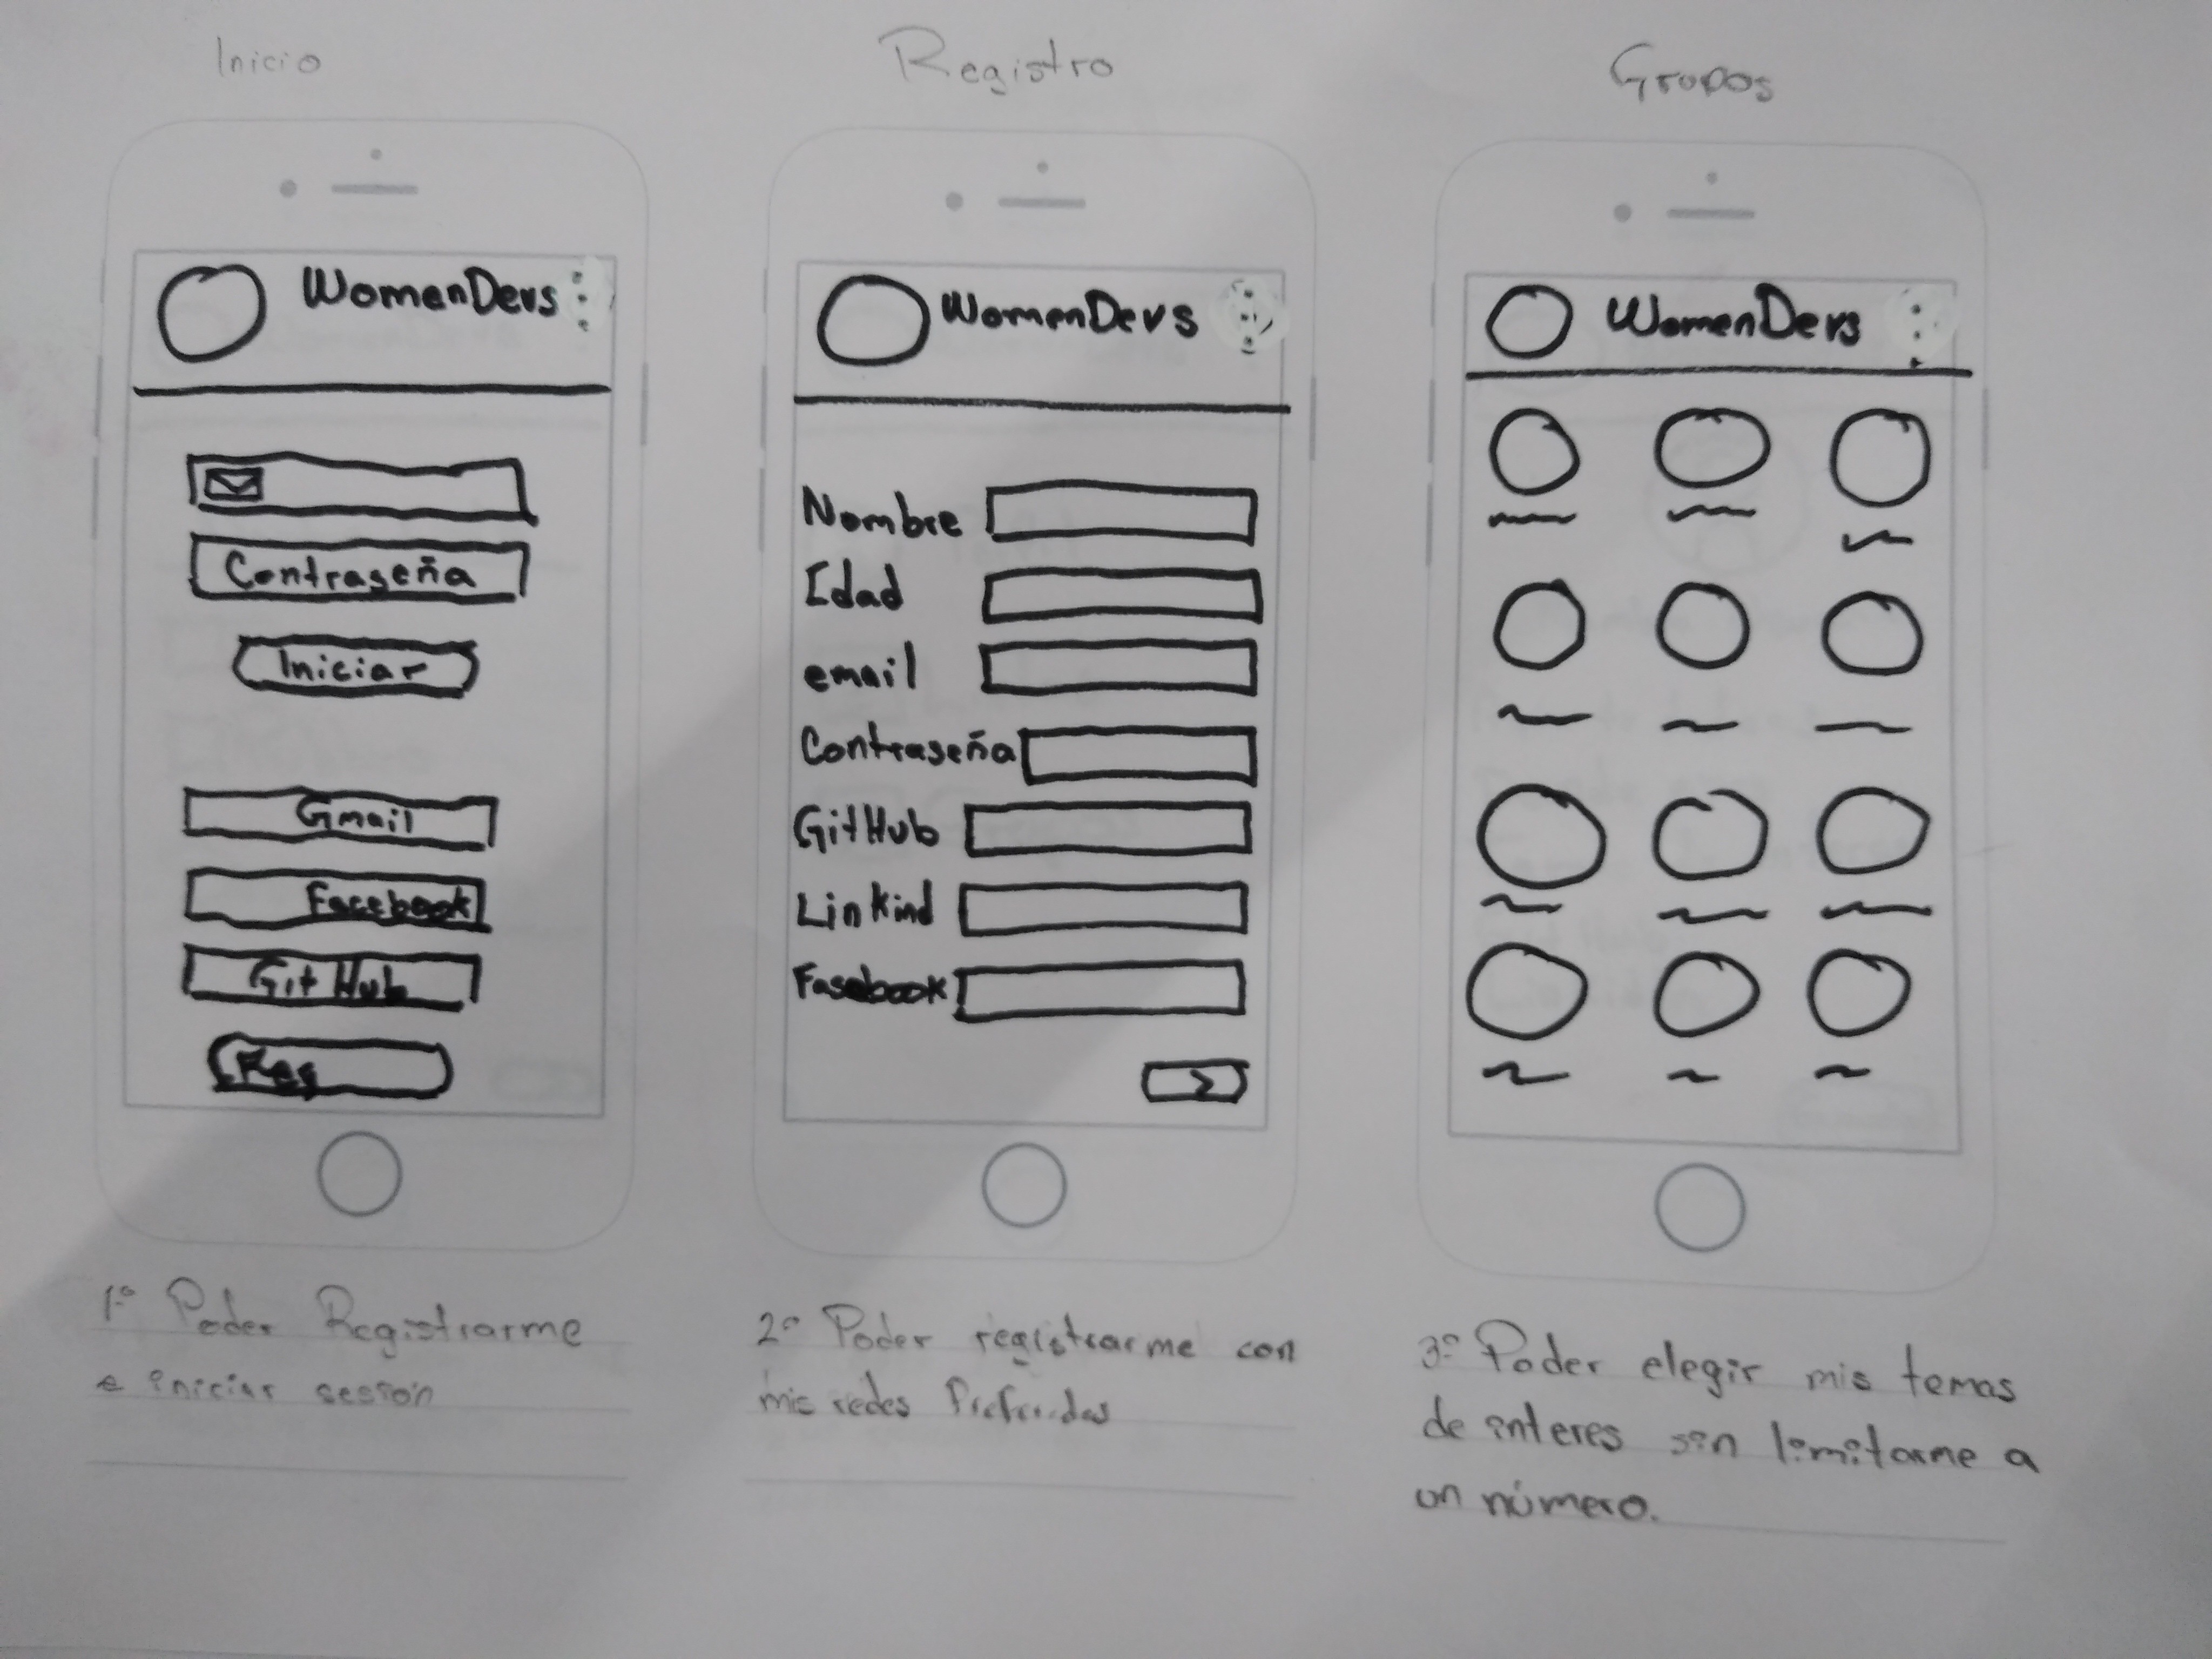 Inicio
WomenDevs
Contraseña
Iniciar
Gmail
Facebook
GitHub
Reg
1º Poder Registrarme
e iniciar sesión
Registro
WomenDevs
Nombre
Edad
email
Contraseña
GitHub
Linkind
Fasebook
>
2º Poder registrarme con
mis redes Preferidas
Grupos
WomenDevs
3º Poder elegir mis temas
de interes sin limitarme a
un número.